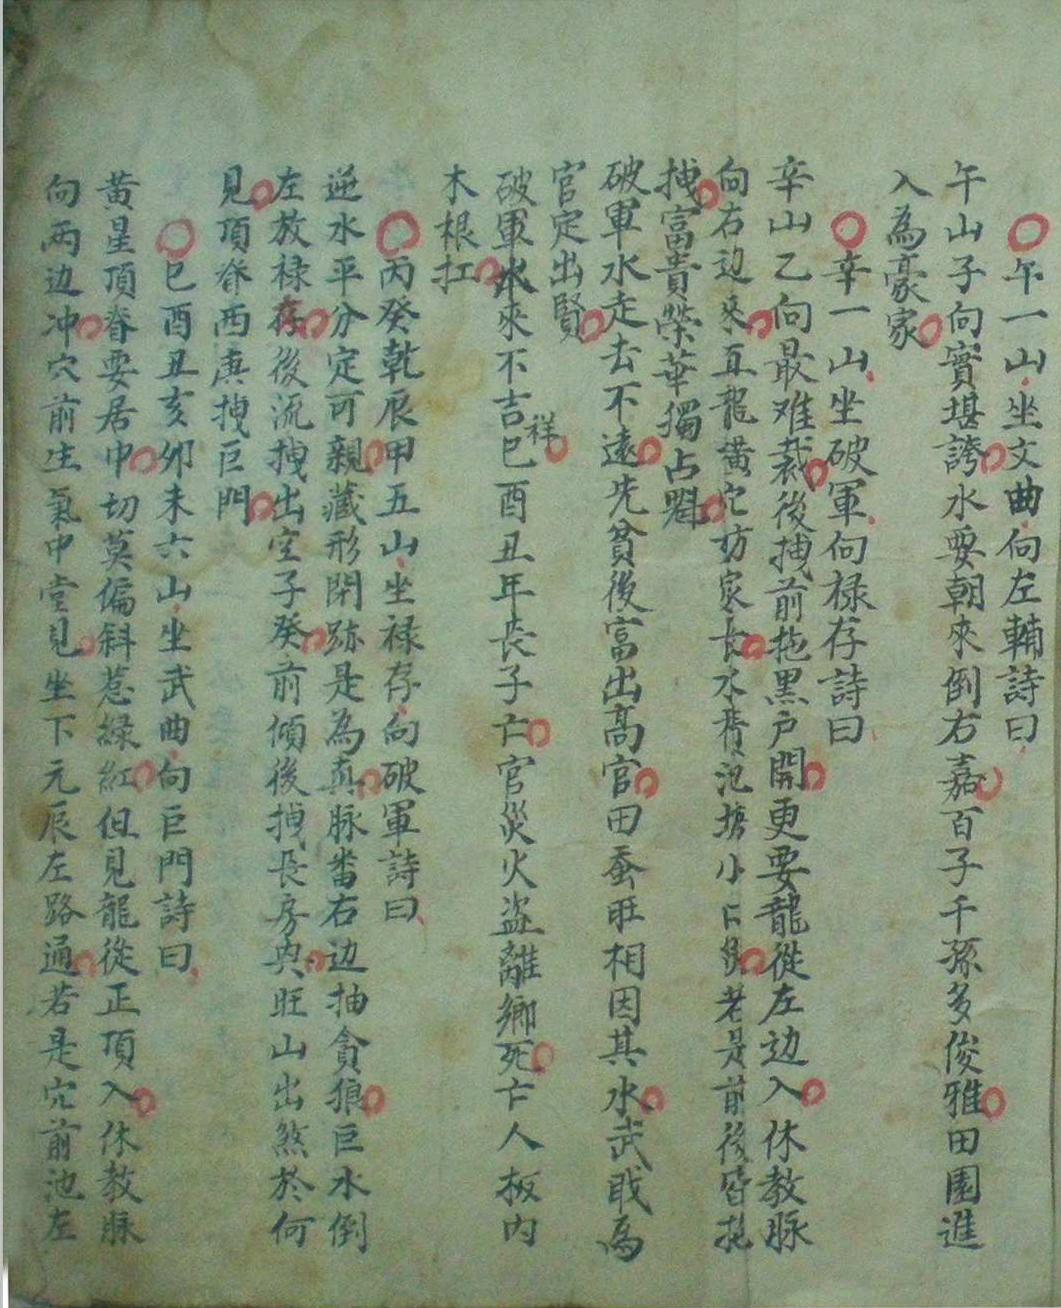 午一山坐文曲向左輔詩曰
午山子向實堪誇水要朝來倒右嘉百子千孫多俊雅田園進
入為豪家
辛一山坐破軍向祿存詩曰
辛山乙向最难裁後拽前拖黑戶開更要龍從左边入休教脉
向右边來互龍黃穴妨家長水 池塘小口 老是前後皆拖
拽富貴榮華獨占魁
破軍水走去不遠先貧後富出高官田蚕旺相因其水武戢為
官定出賢
破軍水來不吉祥巳酉丑年丧子亡官災火盗離鄉死亡人板内
木根扛
丙癸乾辰甲五山坐祿存向破軍詩曰
逆水平分定可親藏形閉跡是為真脉畨右边抽貪狼巨水倒
左放禄存後流拽出空子癸前傾後拽長房典旺山出煞於何
見頂脊西庚拽巨門
巳酉丑亥卯未六山坐武曲向巨門詩曰
黃星頂脊要居中切莫偏斜惹緑紅但見龍從正頂入休教脉
向两边冲穴前生氣中堂見坐下元辰左路通若是穴前池左